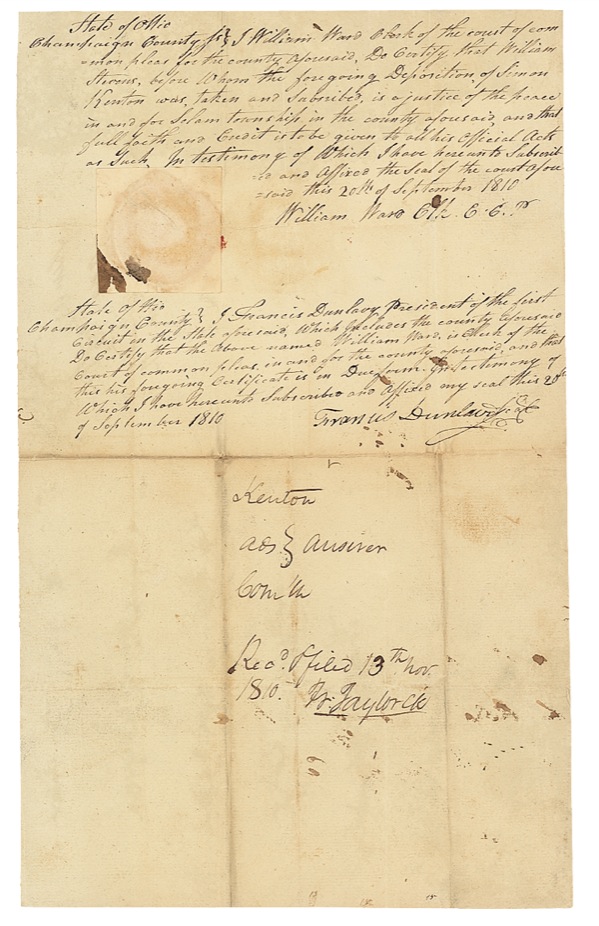 State of Ohio
Champaign County ss } I William Ward Clerk of the court of com
=mon pleas for the county aforesaid, Do Certify that William
Stevens, before Whom the foregoing Deposition, of Simon
Kenton was, taken and Subscribed, is a justice of the peace
in and for Salem township in the county aforesaid, and that
full faith and Credit is to be given to all his Official Acts
as Such, In testimony of Which I have hereunto Subscrib
=ed and Affixed the Seal of the court afore
=said this 20th of September 1810
William Ward Clk. C. C.
State of Ohio
Champaign County } I Francis Dunlavy President of the first
Circuit in the State aforesaid, Which includes the county aforesaid
Do Certify that the Above named William Ward, is Clerk of the
Court of common pleas, in and for the county aforesaid, and that
this his foregoing Certificate is in Due form. In testimony of
Which I have hereunto Subscribed and Affixed my seal this 20th
of September 1810
Francis Dunlavy Seal
Kenton
ads } Answer
Comth
Recd. & filed 13th Nov.
1810.
Taylor Ck